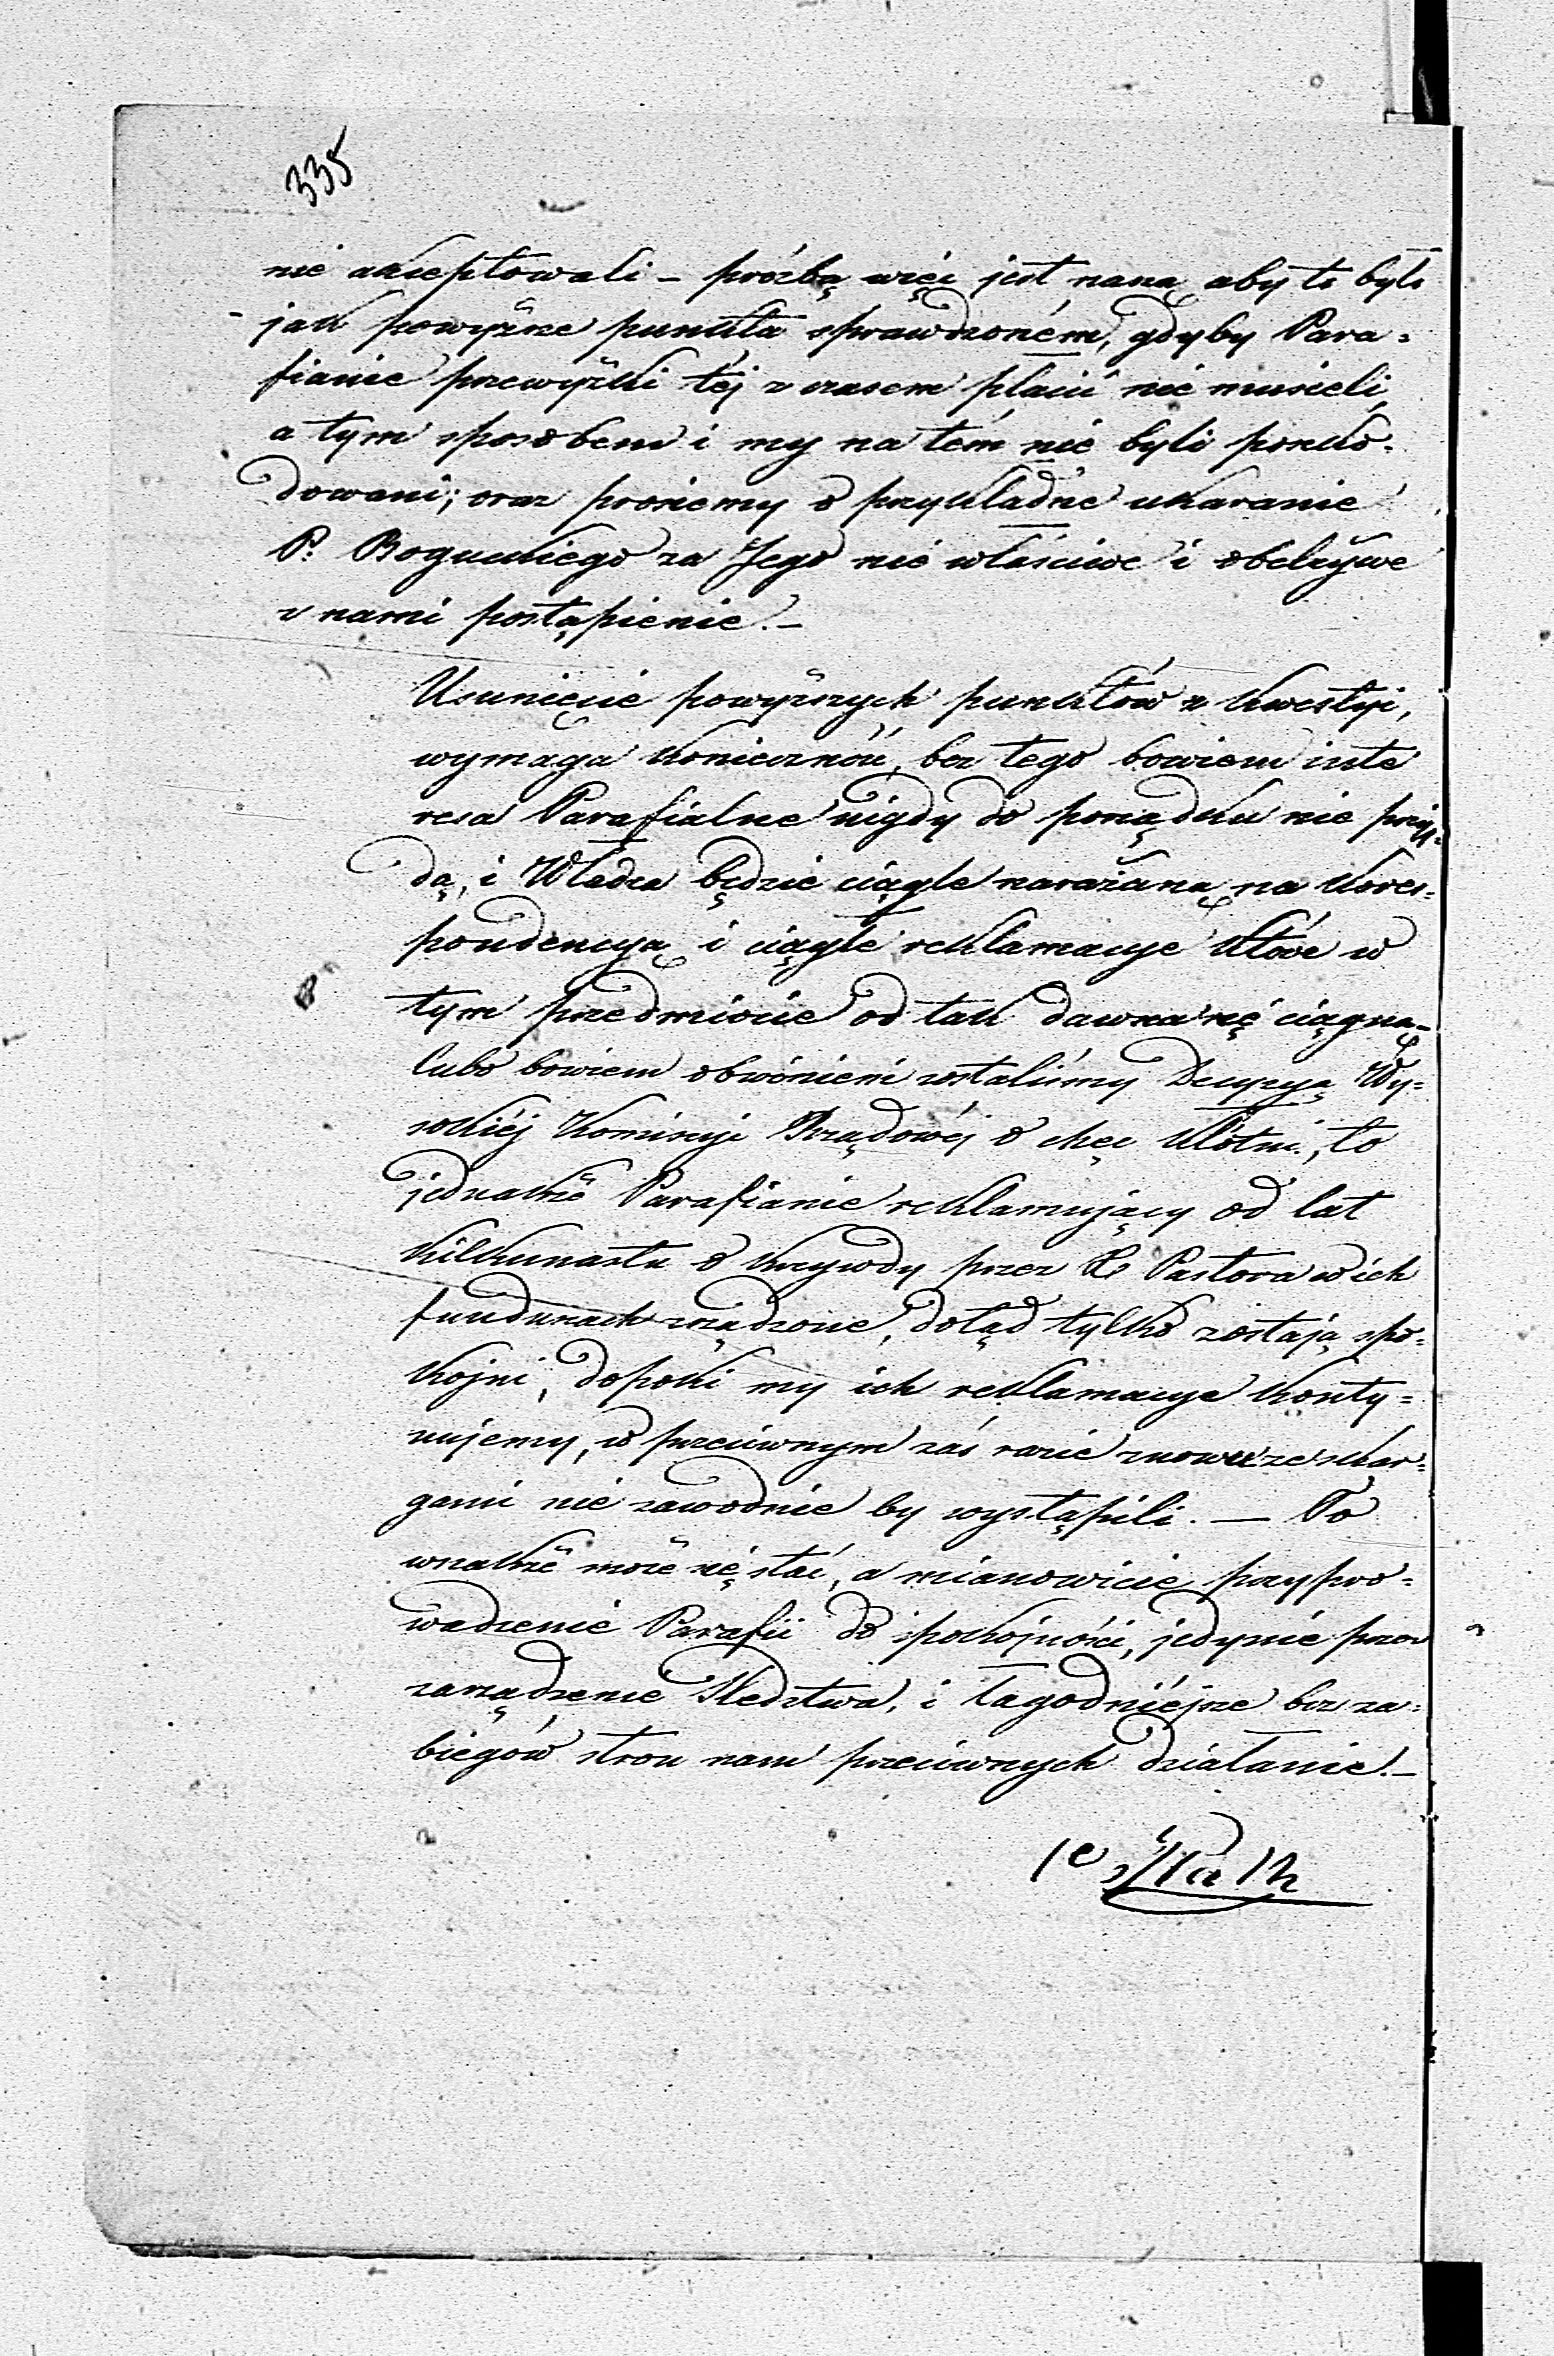 335
nie akceptowali – prozbą więc jest naszą aby to było
jak powyższe punkta sprawdzoném, gdyby Para=
fianie przewyżki téj z czasem płacić nie musieli,
a tym sposobem i my na tém nie byli poszko=
dowani; oraz prosiemy o przykładne ukaranie
P. Boguckiego za Jego nie właściwe i obelżywe
z nami postąpienie. –
Usunięcie powyższych punktów z kwestyi,
wymaga konieczność, bez tego bowiem inte
resa Parafialne nigdy do porządku nie przyj=
dą, i Władza będzie ciągle narażaną na kores=
pondencyą i ciągłe reklamacye które w
tym przedmiocie od tak dawna się ciągną –
lubo bowiem obwinieni zostaliśmy Decyzyą Wy=
sokiéj Komisyi Rządowéj o chęć kłótni, to
jednakże Parafianie reklamujący od lat
kilkunastu o krzywdy przez X Pastora w ich
funduszach zrządzone, dotąd tylko zostają spo=
kojni, dopóki my ich reklamacye konty=
nujemy, w przeciwnym zaś razie znowu ze skar=
gami nie zawodnie by wystąpili. — To
wszakże może się stać, a mianowicie przypro=
wadzenie Parafii do spokojności, jedynie przez
zarządzenie Śledztwa, i łagodniéjsze bez za=
biegów stron nam przeciwnych działanie. –